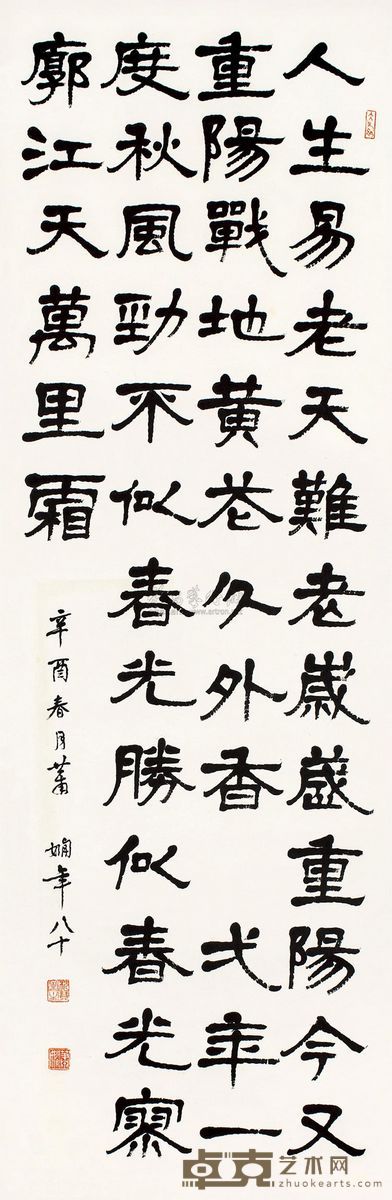 人生易老天難老歲歲重陽今又
重陽戰地黃花分外香弌年一
度秋風勁不似春光勝似春光寥
廓江天萬里霜
辛酉春月蕭嫻年八十
卓克艺术网
zhuokearts.com